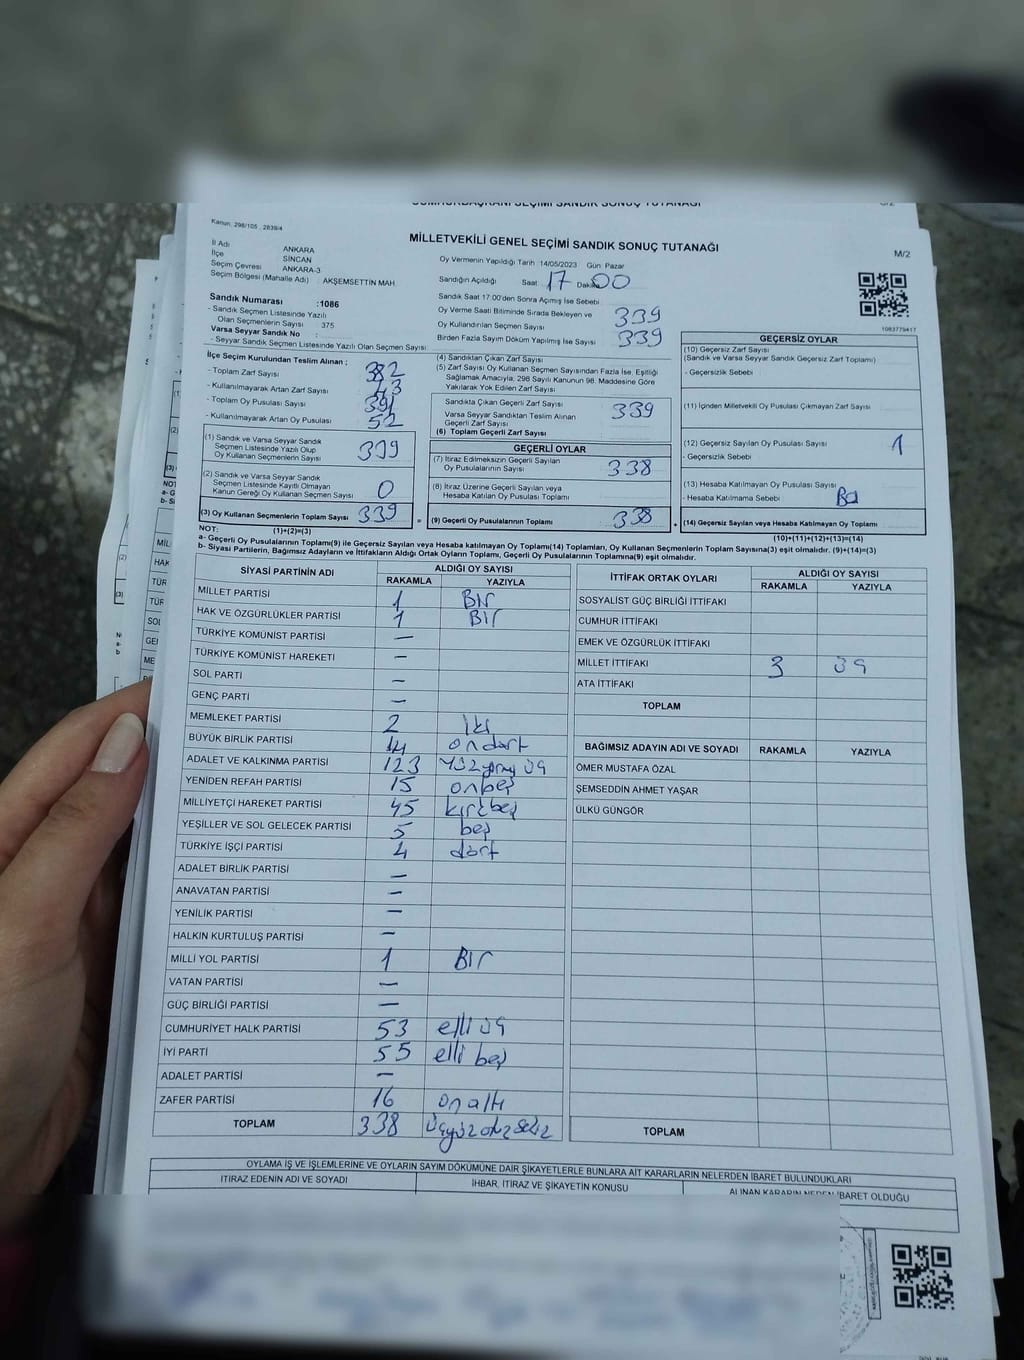 CUMHURBAŞKANI SEÇİMİ SANDIK SONUÇ TUTANAĞI
Kanun, 298/105 , 2839/4
MİLLETVEKİLİ GENEL SEÇİMİ SANDIK SONUÇ TUTANAĞI
M/2
İl Adı ANKARA
İlçe SİNCAN
Seçim Çevresi ANKARA-3
Seçim Bölgesi (Mahalle Adı) : AKŞEMSETTİN MAH.
Sandık Numarası :1086
- Sandık Seçmen Listesinde Yazılı
Olan Seçmenlerin Sayısı 375
Varsa Seyyar Sandık No :
- Seyyar Sandık Seçmen Listesinde Yazılı Olan Seçmen Sayısı
Oy Vermenin Yapıldığı Tarih 14/05/2023 Gün Pazar
Sandığın Açıldığı Saat 17 Dakika 00
Sandık Saat 17:00'den Sonra Açılmış İse Sebebi
Oy Verme Saati Bitiminde Sırada Bekleyen ve
Oy Kullandırılan Seçmen Sayısı 339
Birden Fazla Sayım Döküm Yapılmış İse Sayısı 339
1083779417
İlçe Seçim Kurulundan Teslim Alınan ;
- Toplam Zarf Sayısı 382
- Kullanılmayarak Artan Zarf Sayısı 43
- Toplam Oy Pusulası Sayısı 391
- Kullanılmayarak Artan Oy Pusulası 52
(1) Sandık ve Varsa Seyyar Sandık
Seçmen Listesinde Yazılı Olup
Oy Kullanan Seçmenlerin Sayısı 339
(2) Sandık ve Varsa Seyyar Sandık
Seçmen Listesinde Kayıtlı Olmayan
Kanun Gereği Oy Kullanan Seçmen Sayısı 0
(3) Oy Kullanan Seçmenlerin Toplam Sayısı 339
(4) Sandıktan Çıkan Zarf Sayısı
(5) Zarf Sayısı Oy Kullanan Seçmen Sayısından Fazla İse, Eşitliği
Sağlamak Amacıyla, 298 Sayılı Kanunun 98. Maddesine Göre
Yakılarak Yok Edilen Zarf Sayısı
Sandıkta Çıkan Geçerli Zarf Sayısı 339
Varsa Seyyar Sandıktan Teslim Alınan
Geçerli Zarf Sayısı
(6) Toplam Geçerli Zarf Sayısı
GEÇERLİ OYLAR
(7) İtiraz Edilmeksizin Geçerli Sayılan
Oy Pusulalarının Sayısı 338
(8) İtiraz Üzerine Geçerli Sayılan veya
Hesaba Katılan Oy Pusulası Toplamı
= (9) Geçerli Oy Pusulalarının Toplamı 338
GEÇERSİZ OYLAR
(10) Geçersiz Zarf Sayısı
(Sandık ve Varsa Seyyar Sandık Geçersiz Zarf Toplamı)
- Geçersizlik Sebebi
(11) İçinden Milletvekili Oy Pusulası Çıkmayan Zarf Sayısı
(12) Geçersiz Sayılan Oy Pusulası Sayısı 1
- Geçersizlik Sebebi
(13) Hesaba Katılmayan Oy Pusulası Sayısı
- Hesaba Katılmama Sebebi
+ (14) Geçersiz Sayılan veya Hesaba Katılmayan Oy Toplamı
NOT: (1)+(2)=(3)
(10)+(11)+(12)+(13)=(14)
a- Geçerli Oy Pusulalarının Toplamı(9) ile Geçersiz Sayılan veya Hesaba Katılmayan Oy Toplamı(14) Toplamları, Oy Kullanan Seçmenlerin Toplam Sayısına(3) eşit olmalıdır. (9)+(14)=(3)
b- Siyasi Partilerin, Bağımsız Adayların ve İttifakların Aldığı Ortak Oyların Toplamı, Geçerli Oy Pusulalarının Toplamına(9) eşit olmalıdır.
SİYASİ PARTİNİN ADI ALDIĞI OY SAYISI
RAKAMLA YAZIYLA
MİLLET PARTİSİ 1 BİR
HAK VE ÖZGÜRLÜKLER PARTİSİ 1 BIr
TÜRKİYE KOMÜNİST PARTİSİ —
TÜRKİYE KOMÜNİST HAREKETİ —
SOL PARTİ —
GENÇ PARTİ —
MEMLEKET PARTİSİ 2 İki
BÜYÜK BİRLİK PARTİSİ 14 ondört
ADALET VE KALKINMA PARTİSİ 123 Yüzyirmi üç
YENİDEN REFAH PARTİSİ 15 onbeş
MİLLİYETÇİ HAREKET PARTİSİ 45 kırkbeş
YEŞİLLER VE SOL GELECEK PARTİSİ 5 beş
TÜRKİYE İŞÇİ PARTİSİ 4 dört
ADALET BİRLİK PARTİSİ —
ANAVATAN PARTİSİ —
YENİLİK PARTİSİ —
HALKIN KURTULUŞ PARTİSİ —
MİLLİ YOL PARTİSİ 1 BIr
VATAN PARTİSİ —
GÜÇ BİRLİĞİ PARTİSİ —
CUMHURİYET HALK PARTİSİ 53 elli üç
İYİ PARTİ 55 elli beş
ADALET PARTİSİ —
ZAFER PARTİSİ 16 onaltı
TOPLAM 338 üçyüzotuzsekiz
İTTİFAK ORTAK OYLARI ALDIĞI OY SAYISI
RAKAMLA YAZIYLA
SOSYALİST GÜÇ BİRLİĞİ İTTİFAKI
CUMHUR İTTİFAKI
EMEK VE ÖZGÜRLÜK İTTİFAKI
MİLLET İTTİFAKI 3 üç
ATA İTTİFAKI
TOPLAM
BAĞIMSIZ ADAYIN ADI VE SOYADI RAKAMLA YAZIYLA
ÖMER MUSTAFA ÖZAL
ŞEMSEDDİN AHMET YAŞAR
ÜLKÜ GÜNGÖR
TOPLAM
OYLAMA İŞ VE İŞLEMLERİNE VE OYLARIN SAYIM DÖKÜMÜNE DAİR ŞİKAYETLERLE BUNLARA AİT KARARLARIN NELERDEN İBARET BULUNDUKLARI
İTİRAZ EDENİN ADI VE SOYADI İHBAR, İTİRAZ VE ŞİKAYETİN KONUSU ALINAN KARARIN NEDEN İBARET OLDUĞU